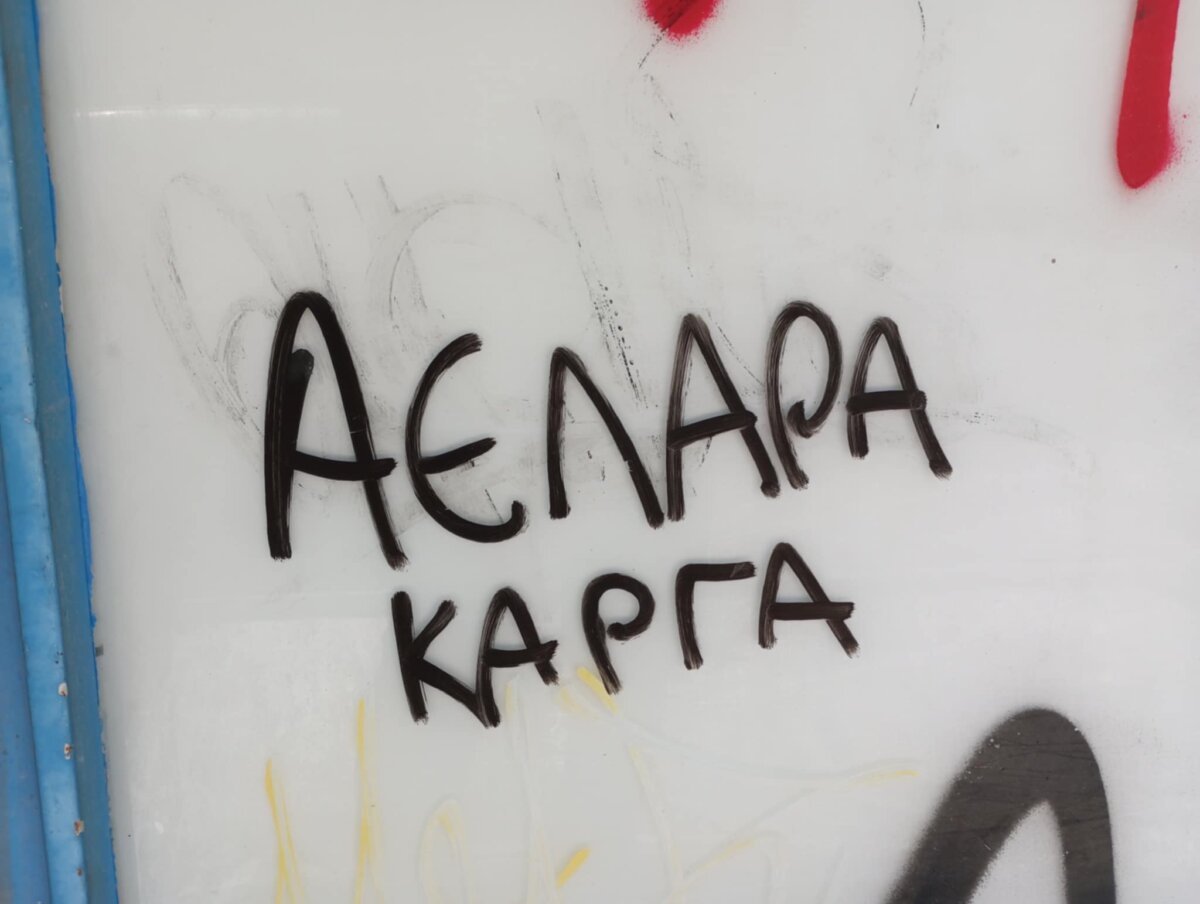 ΑΕΛΑΡΑ
ΚΑΡΓΑ